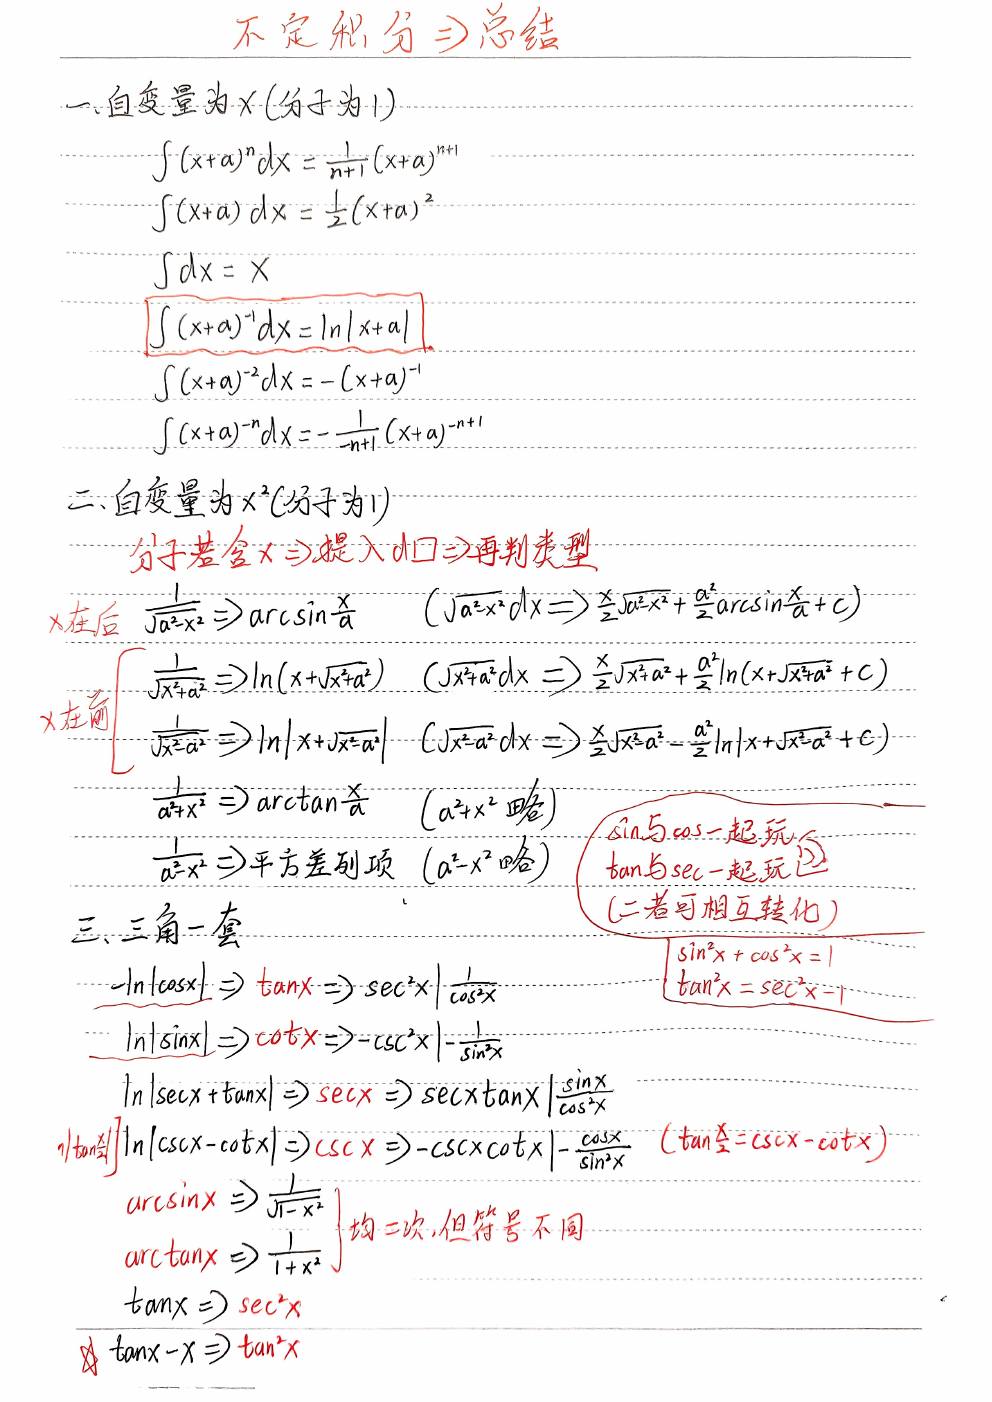 不定积分⇒总结
一、自变量为x(分子为1)
∫(x+a)ⁿdx = 1/(n+1) (x+a)ⁿ⁺¹
∫(x+a) dx = 1/2 (x+a)²
∫dx = x
∫(x+a)⁻¹dx = ln|x+a|
∫(x+a)⁻²dx = -(x+a)⁻¹
∫(x+a)⁻ⁿdx = - 1/(-n+1) (x+a)⁻ⁿ⁺¹
二、自变量为x²(分子为1)
分子若含x⇒提入d口⇒再判类型
x在后 1/√(a²-x²) ⇒ arcsin x/a (√(a²-x²) dx ⇒ x/2 √(a²-x²) + a²/2 arcsin x/a + C)
x在前
1/√(x²+a²) ⇒ ln(x+√(x²+a²)) (√(x²+a²) dx ⇒ x/2 √(x²+a²) + a²/2 ln(x+√(x²+a²) + C)
1/√(x²-a²) ⇒ ln|x+√(x²-a²)| (√(x²-a²) dx ⇒ x/2 √(x²-a²) - a²/2 ln|x+√(x²-a²) + C)
1/(a²+x²) ⇒ arctan x/a (a²+x² 略)
1/(a²-x²) ⇒ 平方差列项 (a²-x² 略)
sin与cos一起玩
tan与sec一起玩
(二者可相互转化)
sin²x + cos²x = 1
tan²x = sec²x - 1
三、三角一套
-ln|cosx| ⇒ tanx ⇒ sec²x | 1/cos²x
ln|sinx| ⇒ cotx ⇒ -csc²x | - 1/sin²x
ln|secx+tanx| ⇒ secx ⇒ secxtanx | sinx/cos²x
ln|cscx-cotx| ⇒ cscx ⇒ -cscxcotx | - cosx/sin²x (tan x/2 = cscx-cotx)
arcsinx ⇒ 1/√(1-x²)
arctanx ⇒ 1/(1+x²)
均二次,但符号不同
tanx ⇒ sec²x
☆ tanx-x ⇒ tan²x